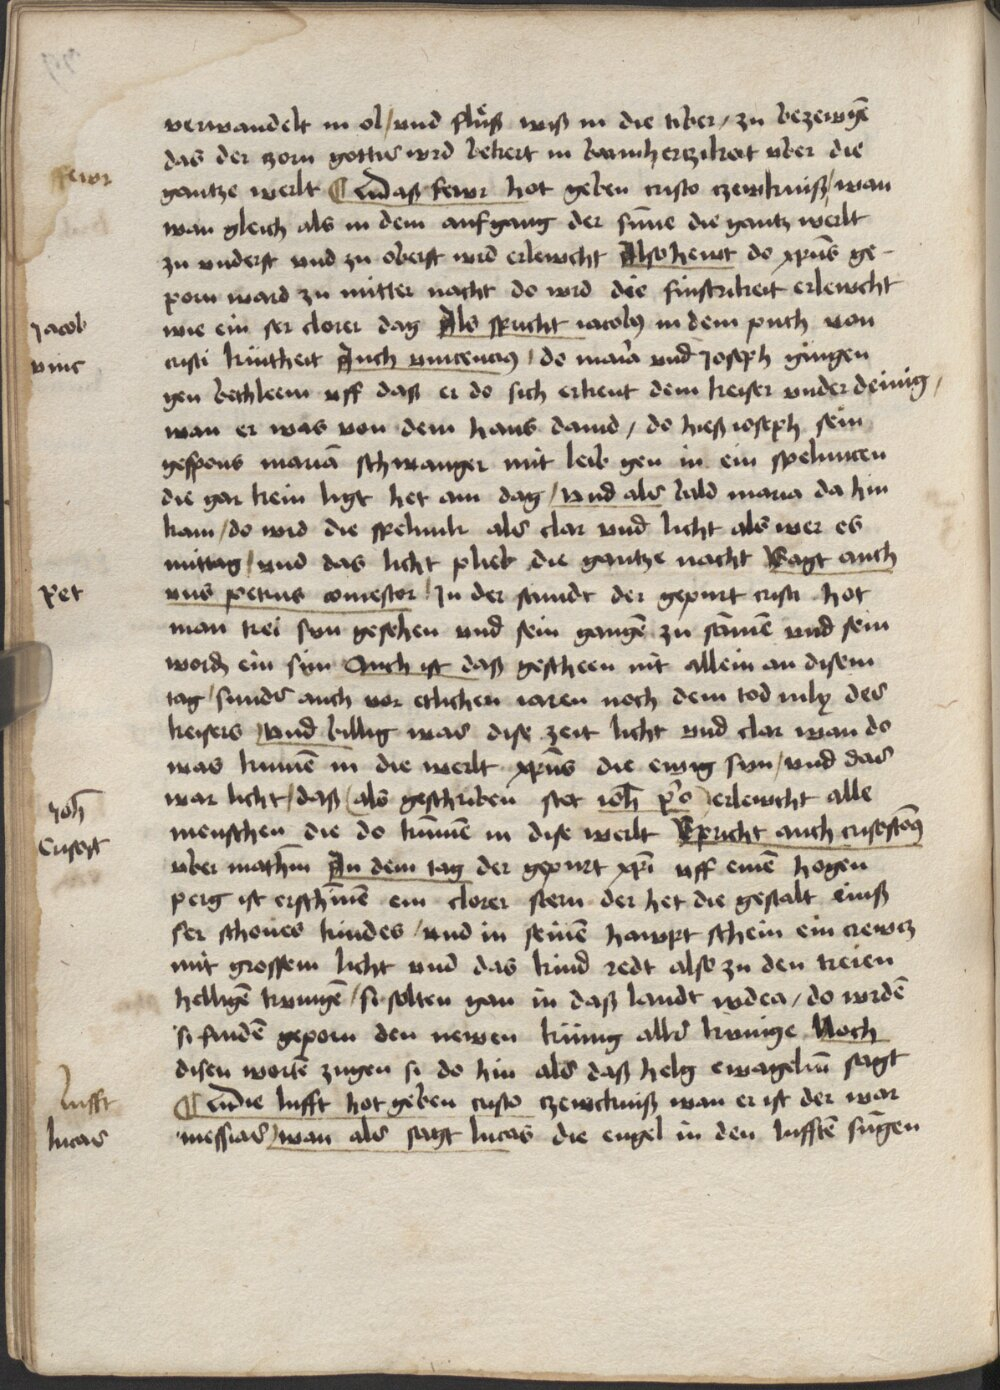 verwandelt in ol / vnd fluͤß wiß in die tiber / zu bezewgē
das der zorn gottis wrd bekert in barmhertzikeit vber die
fewr
gantze werlt ¶ Daß fewr hot geben cristo czewknuß / wan
wan gleich als in dem aufgang der sūne die gantz werlt
zu vnderst vnd zu oberst wrd erlewcht Also hewt do xpūs ge-
porn ward zu mitter nacht do wrd die finstrikeit erlewcht
Jacob
wie ein ser clorer dag Als spricht iacobꝫ in dem puch von
vinc
cristi kintheit Auch vincenciꝫ / do maria vnd Joseph gingen
gen bethleem vff daß er do sich erkent dem keiser vnderdeinig /
wan er was von dem haus dauid / do hieß ioseph sein
gespons mariā schwanger mit leib gen in ein speluncen
die gar kein ligt het am dag / vnd als bald maria da hin
kam / do wrd die spelunk als clar vnd licht als wer es
mittag / vnd das licht plieb die gantze nacht Sagt auch
Pet
vns petrus comestor / In der stundt der gepurt cristi hot
man trei sun gesehen vnd sein gangē zu sāmē vnd sein
wordē ein sun Auch ist daß gescheen nit allein an disem
tag / sunder auch vor etlichen iaren noch dem tod iulꝫ des
keisers / vnd billig was dise zeit licht vnd clar wan do
was kumē in die werlt xpūs die ewig sun / vnd das
Joh̄
war licht / daß / als geschriben stet ioh̄ p̊o / erlewcht alle
Crisost
menschen die do kūmē in dise werlt Spricht auch crisostōꝫ
vber math̄m An dem tag der gepurt xp̄i vff einē hogen
perg ist erschinē ein clorer stern der het die gestalt einß
ser schones kindes / vnd in seinē hawpt schein ein crewcz
mit grossem licht vnd das kind redt also zu den treien
helligē kunigē / si solten gan in daß landt iudea / do wrdē
si findē geporn den newen künig aller kunige Noch
disen wortē zugen si do hin als daß helg ewagelīu sagt
lufft
¶ Die lufft hot geben cristo czewcknuß wan er ist der war
lucas
messias / wan als sagt lucas die engel in den lufftē sūgen